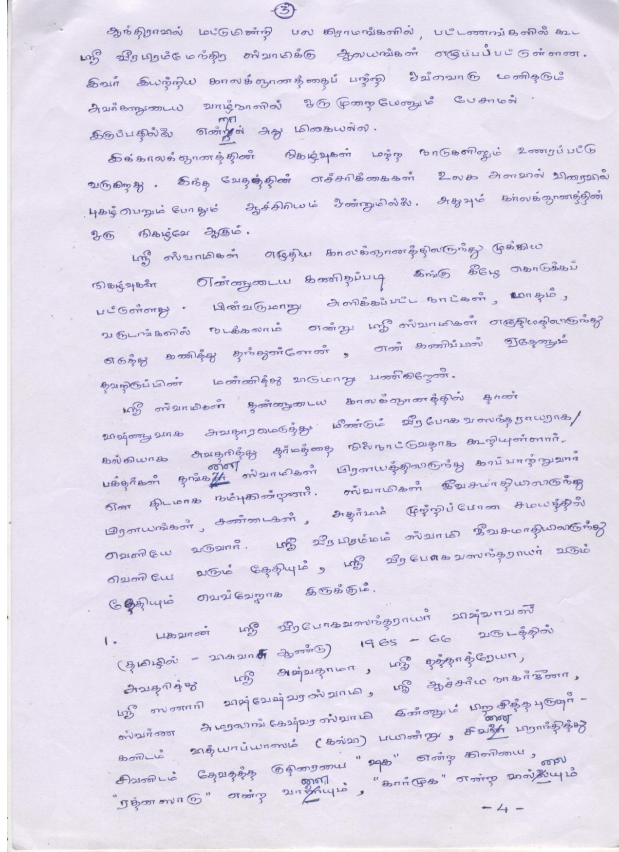 3
ஆந்திராவில் மட்டுமின்றி பல கிராமங்களில், பட்டணங்களில் கூட
ஸ்ரீ வீரபிரம்மேந்திர ஸ்வாமிக்கு ஆலயங்கள் எழுப்பப்பட்டுள்ளன.
இவர் இயற்றிய காலக்ஞானத்தைப் பற்றி ஒவ்வொரு மனிதரும்
அவர்களுடைய வாழ்நாளில் ஒருமுறையேனும் பேசாமல்
இருப்பதில்லை என்றால் அது மிகையல்ல.
இக்காலக்ஞானத்தின் நிகழ்வுகள் மற்ற நாடுகளிலும் உணரப்பட்டு
வருகிறது. இந்த வேதத்தின் எச்சரிக்கைகள் உலக அளவில் விரைவில்
புகழ்பெறும்போதும் ஆச்சிரியம் ஒன்றுமில்லை. அதுவும் காலக்ஞானத்தின்
ஒரு நிகழ்வே ஆகும்.
ஸ்ரீ ஸ்வாமிகள் எழுதிய காலக்ஞானத்திலிருந்து முக்கிய
நிகழ்வுகள் என்னுடைய கணிதப்படி இங்கு கீழே கொடுக்கப்
பட்டுள்ளது. பின்வருமாறு அளிக்கப்பட்ட நாட்கள், மாதம்,
வருடங்களில் நடக்கலாம் என்று ஸ்ரீ ஸ்வாமிகள் எழுதியதிலிருந்து
எடுத்து கணித்து தந்துள்ளேன், என் கணிப்பில் ஏதேனும்
தவறிருப்பின் மன்னித்து விடுமாறு பணிகிறேன்.
ஸ்ரீ ஸ்வாமிகள் தன்னுடைய காலக்ஞானத்தில் தான்
விஷ்ணுவாக அவதாரமெடுத்து மீண்டும் வீரபோகவஸந்தராயராக/
கல்கியாக அவதரித்து தர்மத்தை நிலைநாட்டுவதாக கூறியுள்ளார்.
பக்தர்கள் தங்களை ஸ்வாமிகள் பிரளயத்திலிருந்து காப்பாற்றுவார்
என திடமாக நம்புகின்றனர். ஸ்வாமிகள் ஜீவசமாதியிலிருந்து
பிரளயங்கள், சண்டைகள், அதர்மம் முற்றிப்போன சமயத்தில்
வெளியே வருவார். ஸ்ரீ வீரபிரம்மம் ஸ்வாமி ஜீவசமாதியிலிருந்து
வெளியே வரும் தேதியும், ஸ்ரீ வீரபோகவஸந்தராயர் வரும்
தேதியும் வெவ்வேறாக இருக்கும்.
1. பகவான் ஸ்ரீ வீரபோகவஸந்தராயர் விஷ்வாவஸீ
(தமிழில் - விசுவாச ஆண்டு) 1965 - 66 வருடத்தில்
அவதரித்து ஸ்ரீ அஷ்வதாமா, ஸ்ரீ தத்தாத்ரேயா,
ஸ்ரீ ஸனாரி விஷ்வேஷ்வரஸ்வாமி, ஸ்ரீ ஆச்சார்ய நாகார்ஜீனா,
ஸ்வர்ண அமரலிங்கேஷ்வர ஸ்வாமி இன்னும் பிற சித்த புருஷர்-
களிடம் வித்யாப்யாஸம் (கல்வி) பயின்று, சிவனை பிரார்த்தித்து
சிவனிடம் தேவதத்த குதிரையை "ஷுக" என்ற கிளியை,
"ரத்னஸாரு" என்ற வாளையும், "கார்முக" என்ற வில்லையும்
-4-